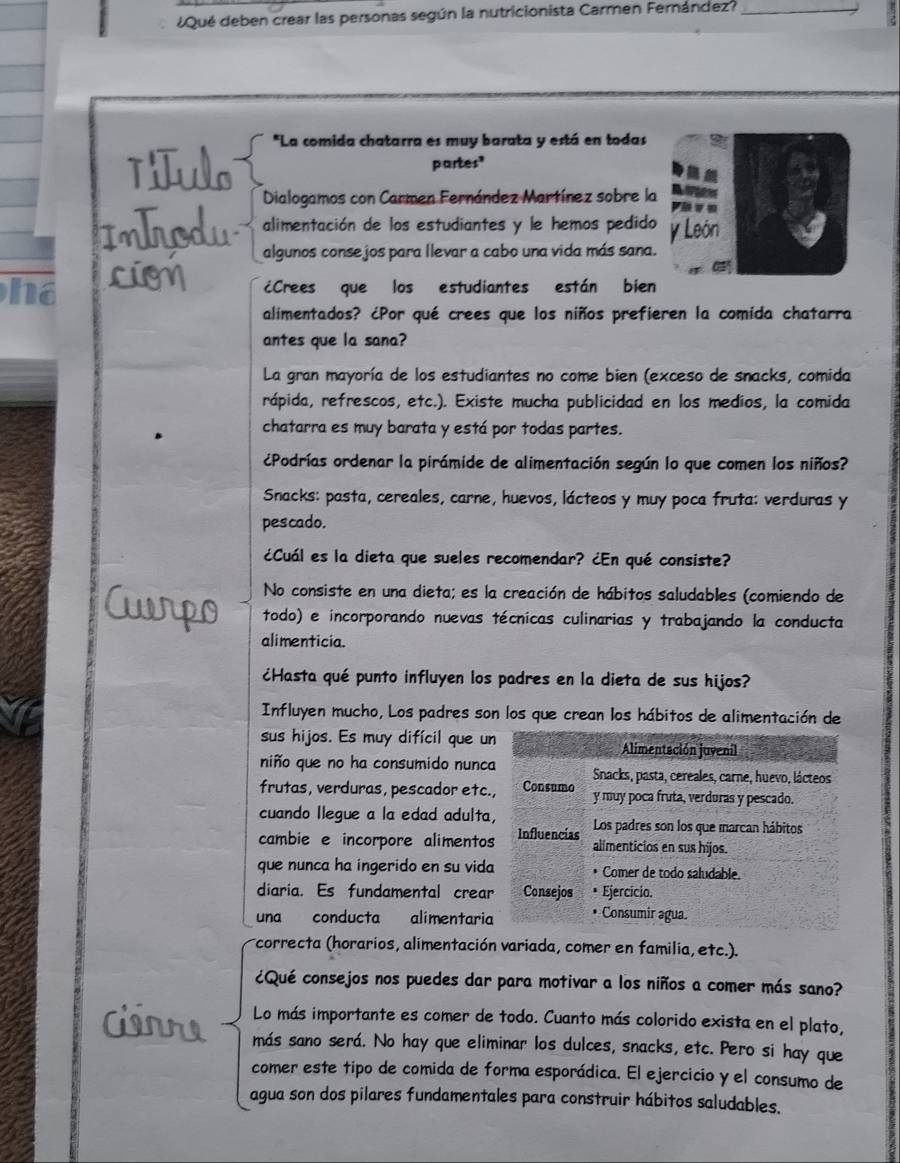 ¿Qué deben crear las personas según la nutricionista Carmen Fernández?
"La comida chatarra es muy barata y está en todas
partes"
Título
Dialogamos con Carmen Fernández Martínez sobre la
alimentación de los estudiantes y le hemos pedido
algunos consejos para llevar a cabo una vida más sana.
Introdu-
ción
y León
¿Crees que los estudiantes están bien
alimentados? ¿Por qué crees que los niños prefieren la comida chatarra
antes que la sana?
La gran mayoría de los estudiantes no come bien (exceso de snacks, comida
rápida, refrescos, etc.). Existe mucha publicidad en los medios, la comida
chatarra es muy barata y está por todas partes.
¿Podrías ordenar la pirámide de alimentación según lo que comen los niños?
Snacks: pasta, cereales, carne, huevos, lácteos y muy poca fruta: verduras y
pescado.
¿Cuál es la dieta que sueles recomendar? ¿En qué consiste?
Cuerpo
No consiste en una dieta; es la creación de hábitos saludables (comiendo de
todo) e incorporando nuevas técnicas culinarias y trabajando la conducta
alimenticia.
¿Hasta qué punto influyen los padres en la dieta de sus hijos?
Influyen mucho, Los padres son los que crean los hábitos de alimentación de
sus hijos. Es muy difícil que un
niño que no ha consumido nunca
frutas, verduras, pescador etc.,
cuando llegue a la edad adulta,
cambie e incorpore alimentos
que nunca ha ingerido en su vida
diaria. Es fundamental crear
una conducta alimentaria
Alimentación juvenil
Consumo
Snacks, pasta, cereales, carne, huevo, lácteos
y muy poca fruta, verduras y pescado.
Influencias
Los padres son los que marcan hábitos
alimenticios en sus hijos.
Consejos
• Comer de todo saludable.
• Ejercicio.
• Consumir agua.
correcta (horarios, alimentación variada, comer en familia, etc.).
¿Qué consejos nos puedes dar para motivar a los niños a comer más sano?
Cierre
Lo más importante es comer de todo. Cuanto más colorido exista en el plato,
más sano será. No hay que eliminar los dulces, snacks, etc. Pero si hay que
comer este tipo de comida de forma esporádica. El ejercicio y el consumo de
agua son dos pilares fundamentales para construir hábitos saludables.